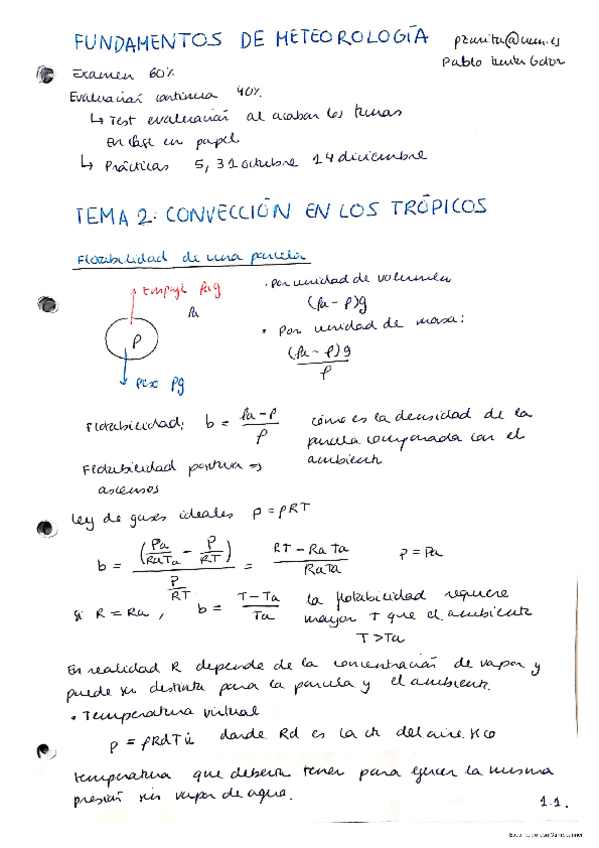 FUNDAMENTOS DE METEOROLOGÍA
Examen 60%
Evaluación continua 40%
↳ Test evaluación al acabar los temas
En clase en papel
↳ Prácticas 5, 31 octubre 14 diciembre
TEMA 2: CONVECCIÓN EN LOS TRÓPICOS
Flotabilidad de una parcela
Empuje ρag
ρa
ρ
peso ρg
• Por unidad de volumen
(ρa - ρ)g
• Por unidad de masa:
(ρa - ρ)g / ρ
Flotabilidad: b = (ρa - ρ) / ρ
cómo es la densidad de la
parcela comparada con el
ambiente
Flotabilidad positiva ⇒
ascensos
Ley de gases ideales p = ρRT
b = (Pa/RaTa - P/RT) / (P/RT) = (RT - RaTa) / RaTa P = Pa
si R = Ra, b = (T - Ta) / Ta
la flotabilidad requiere
mayor T que el ambiente
T > Ta
En realidad R depende de la concentración de vapor y
puede ser distinta para la parcela y el ambiente.
• Temperatura virtual
p = ρRdTv donde Rd es la cte del aire seco
temperatura que debería tener para ejercer la misma
presión sin vapor de agua.
1.1.